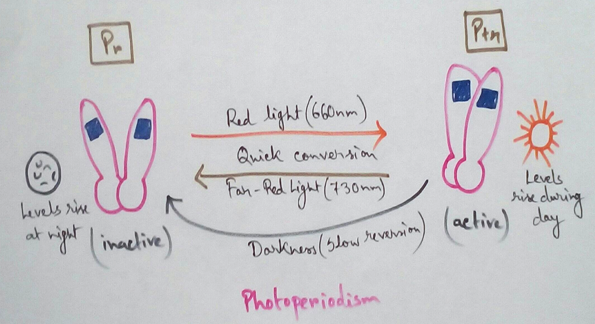 Pr
Pfr
Red light (660nm)
Quick conversion
Far-Red Light (730nm)
Levels rise
at night
(inactive)
Levels
rise during
day
(active)
Darkness (slow reversion)
Photoperiodism